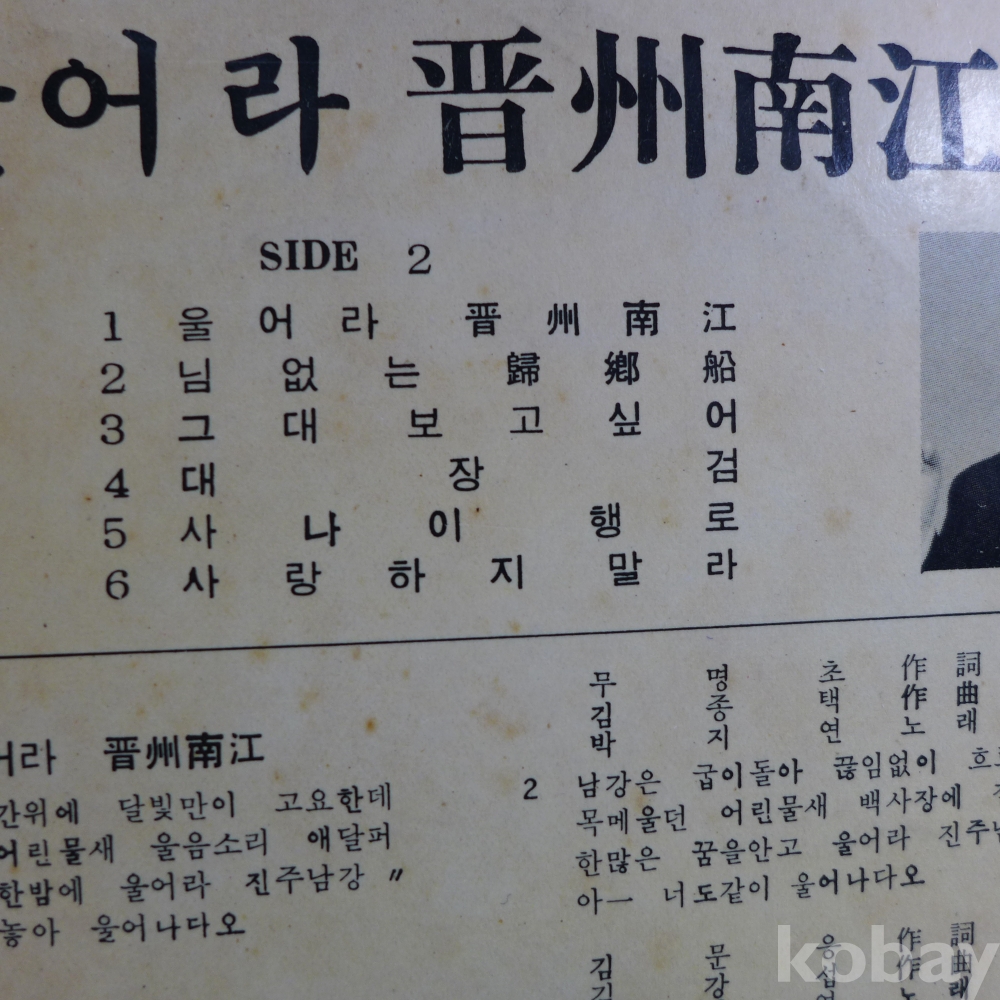 어라 晋州南江
SIDE 2
1 울어라 晋州南江
2 님없는 歸鄕船
3 그대보고싶어
4 대장검
5 사나이행로
6 사랑하지말라
무명초 作詞
김종택 作曲
박지연 노래
어라 晋州南江
간위에 달빛만이 고요한데
어린물새 울음소리 애달퍼
한밤에 울어라 진주남강 〃
놓아 울어나다오
2 남강은 굽이돌아 끊임없이
목메울던 어린물새 백사장에
한많은 꿈을안고 울어라 진주남
아ㅡ 너도같이 울어나다오
김문응 作詞
강섭 作曲
래
kobay